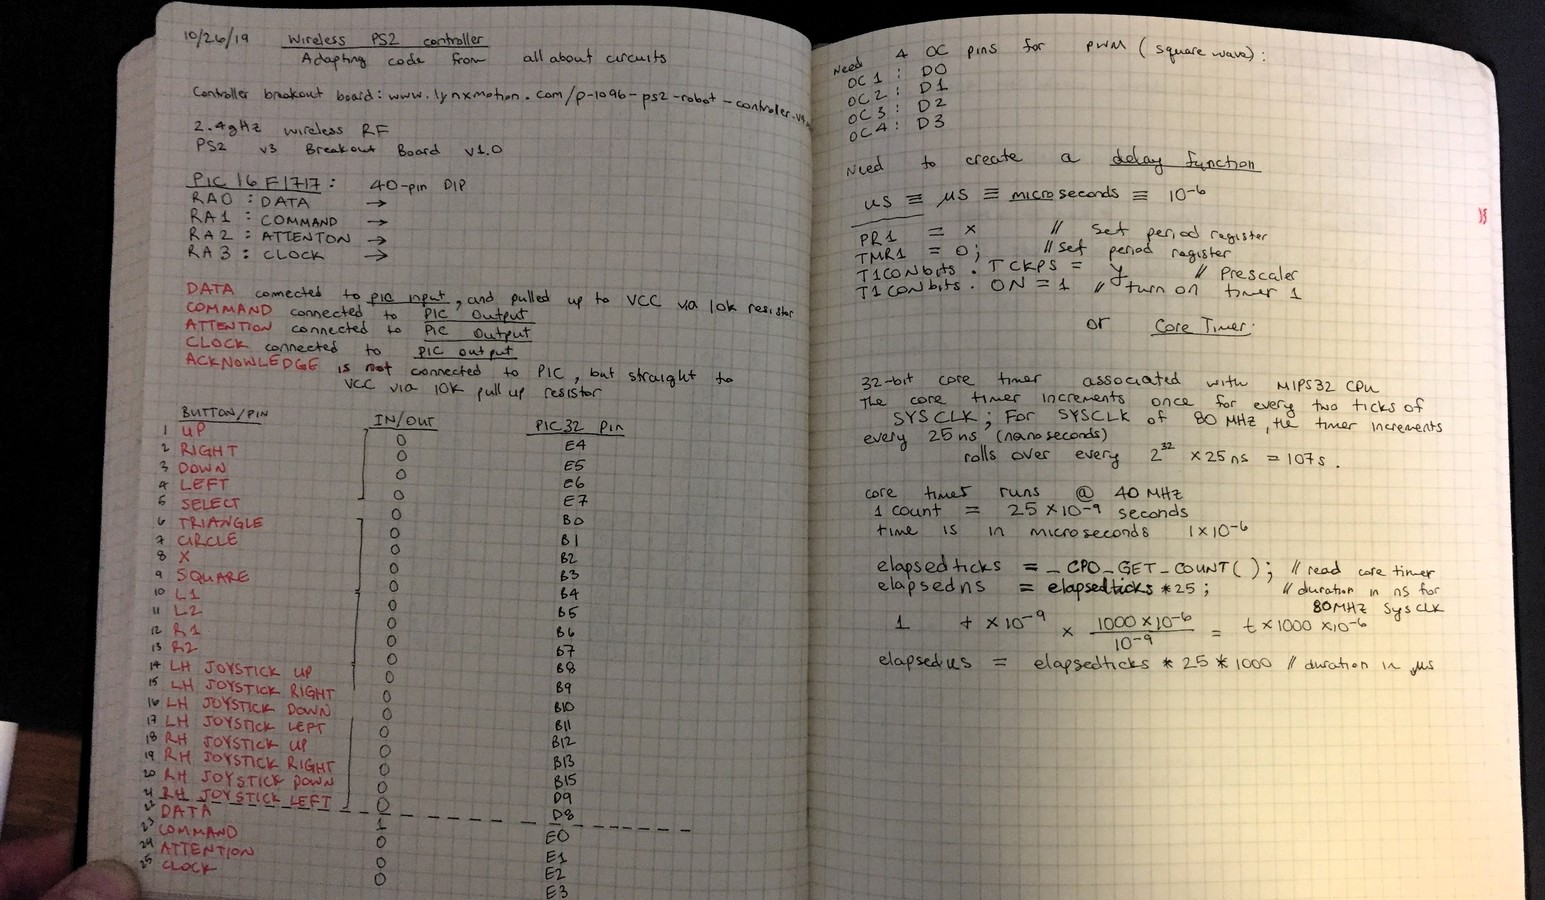 10/26/19 Wireless PS2 controller
Adapting code from all about circuits
Controller breakout board: www.lynxmotion.com/p-1096-ps2-robot-controller-v4
2.4gHz wireless RF
PS2 v3 Breakout Board v1.0
PIC16F1717: 40-pin DIP
RA0: DATA →
RA1: COMMAND →
RA2: ATTENTON →
RA3: CLOCK →
DATA connected to pic input, and pulled up to VCC via 10k resistor
COMMAND connected to PIC Output
ATTENTION connected to PIC Output
CLOCK connected to PIC output
ACKNOWLEDGE is not connected to PIC, but straight to
VCC via 10K pull up resistor
BUTTON/PIN IN/OUT PIC32 Pin
1 UP O E4
2 RIGHT O E5
3 DOWN O E6
4 LEFT O E7
5 SELECT O B0
6 TRIANGLE O B1
7 CIRCLE O B2
8 X O B3
9 SQUARE O B4
10 L1 O B5
11 L2 O B6
12 R1 O B7
13 R2 O B8
14 LH JOYSTICK UP O B9
15 LH JOYSTICK RIGHT O B10
16 LH JOYSTICK DOWN O B11
17 LH JOYSTICK LEFT O B12
18 RH JOYSTICK UP O B13
19 RH JOYSTICK RIGHT O B15
20 RH JOYSTICK DOWN O D9
21 RH JOYSTICK LEFT O D8
22 DATA 1 E0
23 COMMAND O E1
24 ATTENTION O E2
25 CLOCK O E3
Need 4 OC pins for PWM (square wave):
OC1: D0
OC2: D1
OC3: D2
OC4: D3
Need to create a delay function
us ≡ μs ≡ microseconds ≡ 10⁻⁶
PR1 = x // set period register
TMR1 = 0; // set period register
T1CONbits.TCKPS = y // Prescaler
T1CONbits.ON = 1 // turn on timer 1
or Core Timer:
32-bit core timer associated with MIPS32 CPU
The core timer increments once for every two ticks of
SYSCLK; For SYSCLK of 80 MHz, the timer increments
every 25 ns (nanoseconds)
rolls over every 2³² × 25 ns = 107s.
core timer runs @ 40 MHz
1 count = 25 × 10⁻⁹ seconds
time is in microseconds 1×10⁻⁶
elapsedticks = _CP0_GET_COUNT(); // read core timer
elapsedns = elapsedticks * 25; // duration in ns for
80MHz SysCLK
1 t × 10⁻⁹ × 1000 × 10⁻⁶ / 10⁻⁹ = t × 1000 × 10⁻⁶
elapsedus = elapsedticks * 25 * 1000 // duration in μs